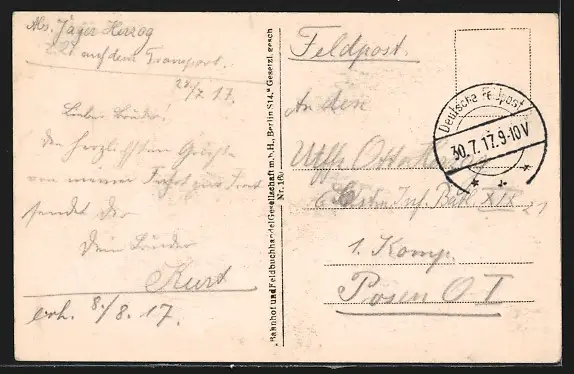 Abs. Jäger Herzog
z. Zt. auf dem Transport.
28/7. 17.
Lieber Bruder!
Die herzlichsten Grüße
von meiner Fahrt zur Front
sendet dir
Dein Bruder
Kurt
erh. 8./8. 17.
Bahnhof und Feldbuchhandel Gesellschaft m.b.H., Berlin S14. Gesetzl. gesch
Nr. 160
Feldpost.
An den
Uffz. Otto Herzog
Ldstrm. Inf. Batl. XIX
21
1. Komp.
Posen O I
Deutsche Feldpost
30.7.17.9-10V